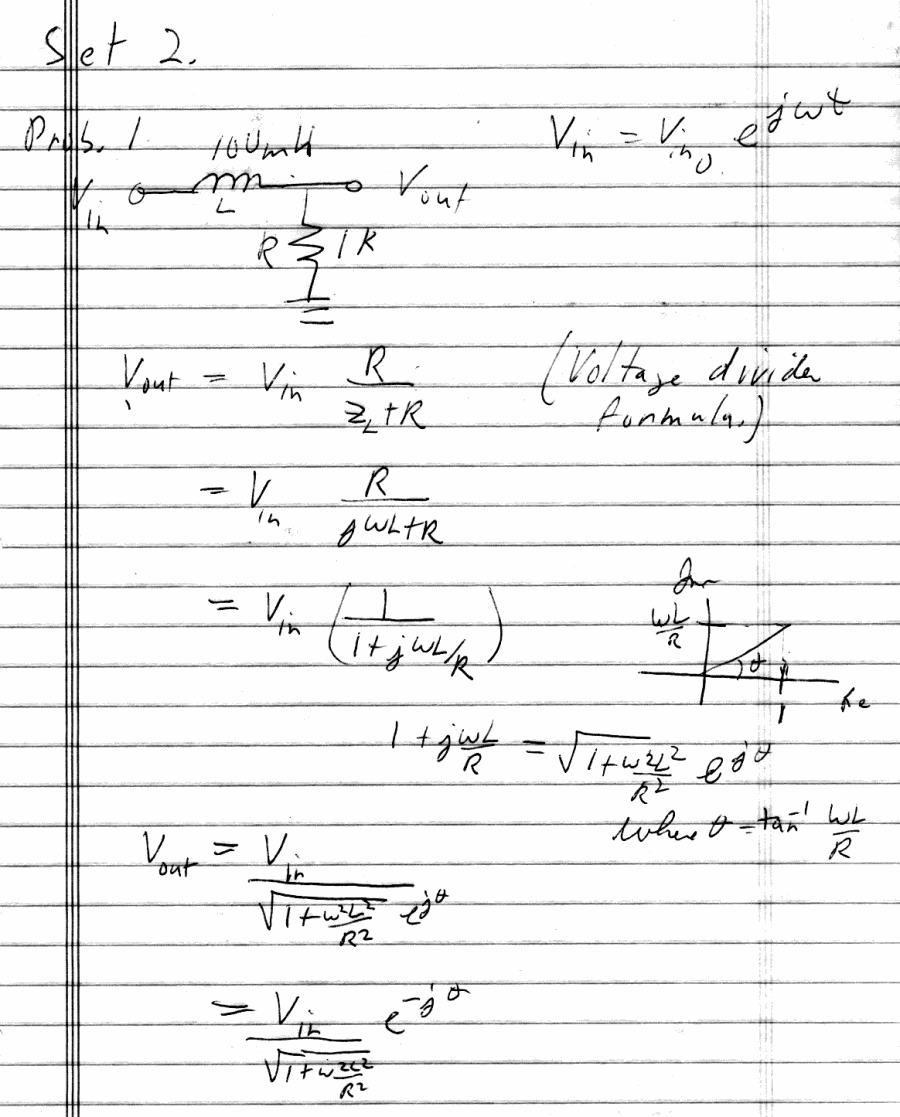 Set 2.
Prob. 1
V_in = V_in0 e^{jωt}
100mH
V_in
L
V_out
R
1K
V_out = V_in R/(Z_L+R) (Voltage divider
formula.)
= V_in R/(jωL+R)
= V_in (1/(1+jωL/R))
Im
ωL/R
θ
1
Re
1 + jωL/R = √(1+ω²L²/R²) e^{jθ}
where θ = tan⁻¹ ωL/R
V_out = V_in/(√(1+ω²L²/R²) e^{jθ})
= V_in/√(1+ω²L²/R²) e^{-jθ}